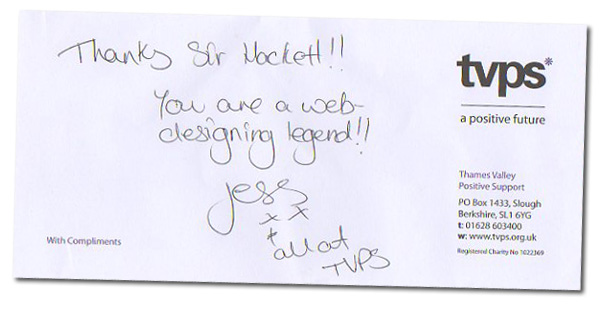 Thanks Sir Hockett!!
You are a web-
designing legend!!
Jess
x x
+ all at
TVPS
With Compliments
tvps*
a positive future
Thames Valley
Positive Support
PO Box 1433, Slough
Berkshire, SL1 6YG
t: 01628 603400
w: www.tvps.org.uk
Registered Charity No 1022369